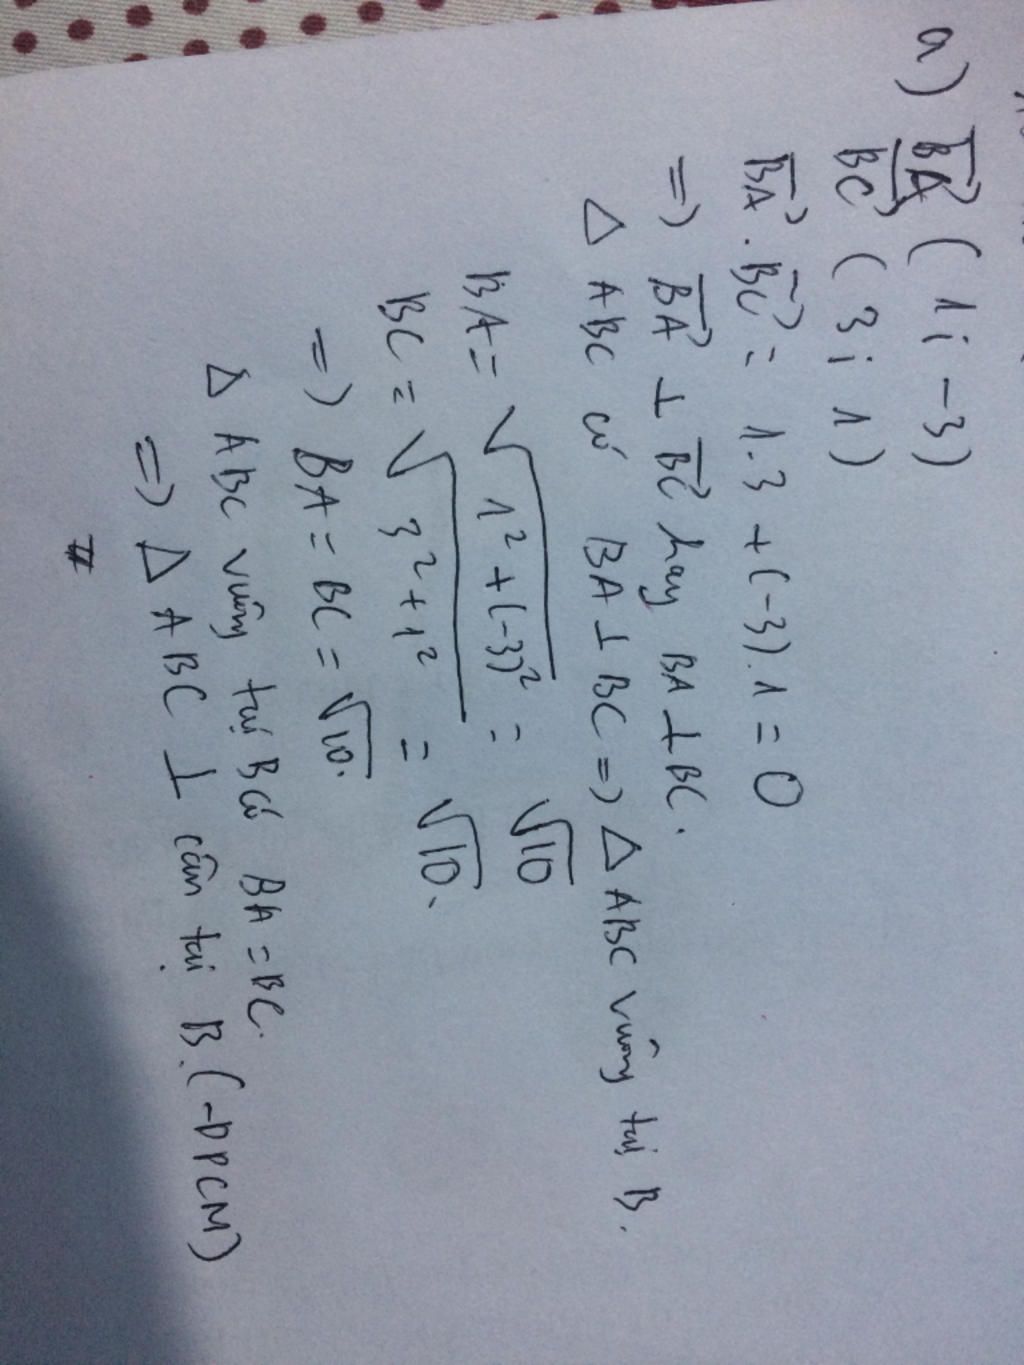 a) BA→ (1; -3)
BC→ (3; 1)
BA→ . BC→ = 1.3 + (-3).1 = 0
=) BA→ ⊥ BC→ hay BA ⊥ BC.
Δ ABC có BA ⊥ BC =) Δ ABC vuông tại B.
BA = √(1² + (-3)²) = √10
BC = √(3² + 1²) = √10.
=) BA = BC = √10.
Δ ABC vuông tại B có BA = BC.
=) Δ ABC ⊥ cân tại B. (ĐPCM)
#